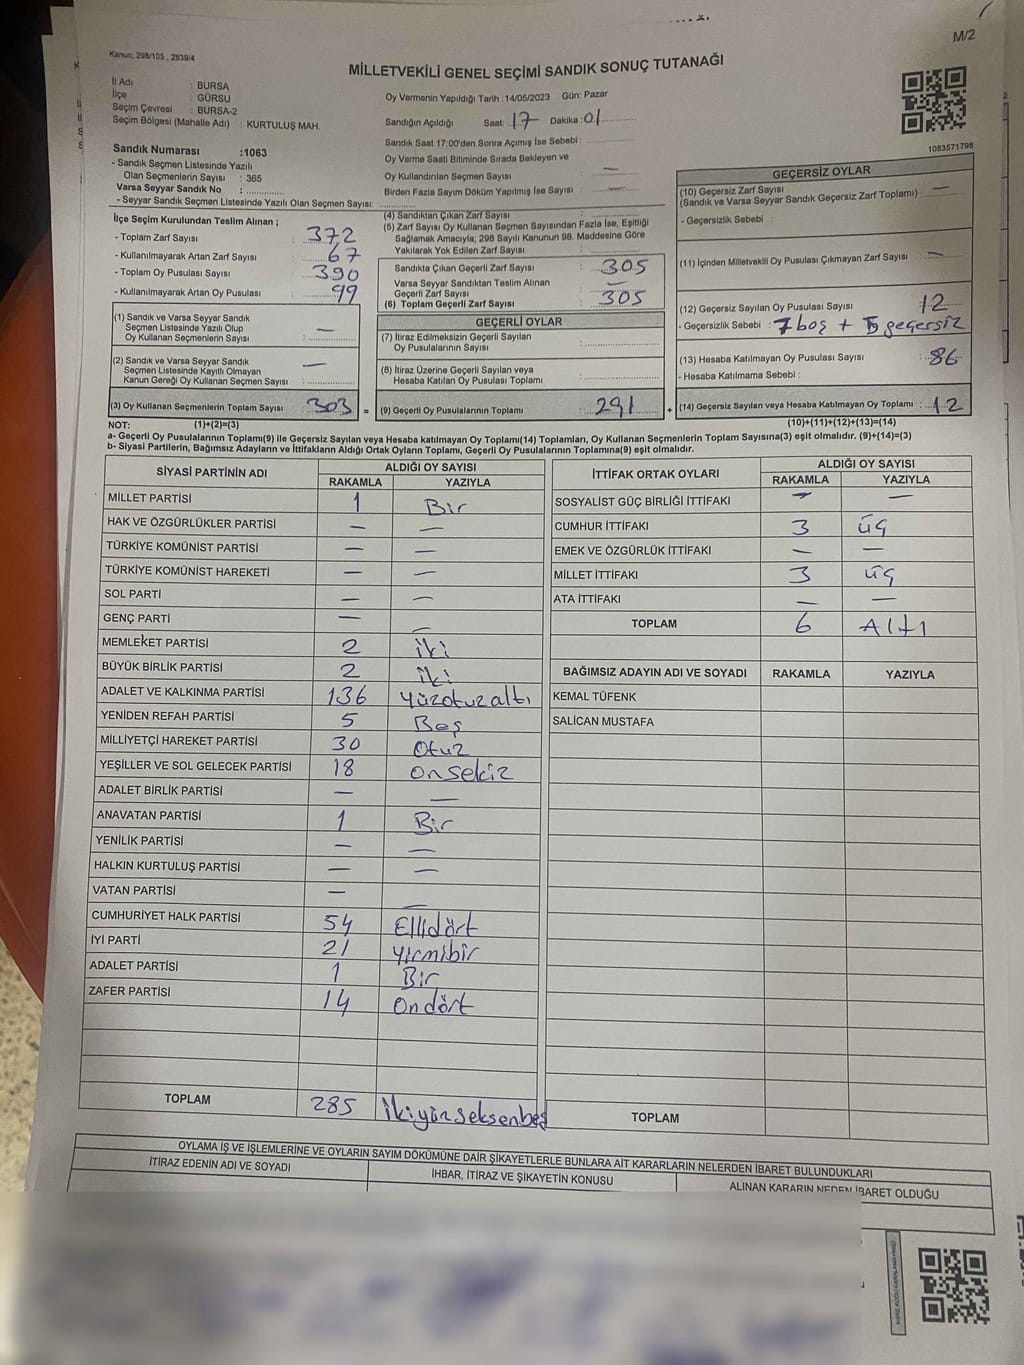 M/2
Kanun: 298/105 , 2839/4
MİLLETVEKİLİ GENEL SEÇİMİ SANDIK SONUÇ TUTANAĞI
İl Adı : BURSA
İlçe : GÜRSU
Seçim Çevresi : BURSA-2
Seçim Bölgesi (Mahalle Adı) : KURTULUŞ MAH.
Sandık Numarası :1063
- Sandık Seçmen Listesinde Yazılı
Olan Seçmenlerin Sayısı : 365
Varsa Seyyar Sandık No :
- Seyyar Sandık Seçmen Listesinde Yazılı Olan Seçmen Sayısı:
Oy Vermenin Yapıldığı Tarih :14/05/2023 Gün: Pazar
Sandığın Açıldığı Saat: 17 Dakika 01
Sandık Saat 17:00'den Sonra Açmış İse Sebebi :
Oy Verme Saati Bitiminde Sırada Bekleyen ve
Oy Kullandırılan Seçmen Sayısı : —
Birden Fazla Sayım Döküm Yapılmış İse Sayısı : —
1083571798
İlçe Seçim Kurulundan Teslim Alınan ;
- Toplam Zarf Sayısı : 372
- Kullanılmayarak Artan Zarf Sayısı : 67
- Toplam Oy Pusulası Sayısı : 390
- Kullanılmayarak Artan Oy Pusulası : 99
(1) Sandık ve Varsa Seyyar Sandık
Seçmen Listesinde Yazılı Olup
Oy Kullanan Seçmenlerin Sayısı : —
(2) Sandık ve Varsa Seyyar Sandık
Seçmen Listesinde Kayıtlı Olmayan
Kanun Gereği Oy Kullanan Seçmen Sayısı : —
(3) Oy Kullanan Seçmenlerin Toplam Sayısı : 303 =
(4) Sandıktan Çıkan Zarf Sayısı :
(5) Zarf Sayısı Oy Kullanan Seçmen Sayısından Fazla İse, Eşitliği
Sağlamak Amacıyla, 298 Sayılı Kanunun 98. Maddesine Göre
Yakılarak Yok Edilen Zarf Sayısı :
Sandıkta Çıkan Geçerli Zarf Sayısı : 305
Varsa Seyyar Sandıktan Teslim Alınan
Geçerli Zarf Sayısı : —
(6) Toplam Geçerli Zarf Sayısı : 305
GEÇERLİ OYLAR
(7) İtiraz Edilmeksizin Geçerli Sayılan
Oy Pusulalarının Sayısı :
(8) İtiraz Üzerine Geçerli Sayılan veya
Hesaba Katılan Oy Pusulası Toplamı :
(9) Geçerli Oy Pusulalarının Toplamı : 291 +
GEÇERSİZ OYLAR
(10) Geçersiz Zarf Sayısı : —
(Sandık ve Varsa Seyyar Sandık Geçersiz Zarf Toplamı)
- Geçersizlik Sebebi :
(11) İçinden Milletvekili Oy Pusulası Çıkmayan Zarf Sayısı : —
(12) Geçersiz Sayılan Oy Pusulası Sayısı : 12
- Geçersizlik Sebebi : 7 boş + 5 geçersiz
(13) Hesaba Katılmayan Oy Pusulası Sayısı : 86
- Hesaba Katılmama Sebebi :
(14) Geçersiz Sayılan veya Hesaba Katılmayan Oy Toplamı : 12
NOT: (1)+(2)=(3) (10)+(11)+(12)+(13)=(14)
a- Geçerli Oy Pusulalarının Toplamı(9) ile Geçersiz Sayılan veya Hesaba katılmayan Oy Toplamı(14) Toplamları, Oy Kullanan Seçmenlerin Toplam Sayısına(3) eşit olmalıdır. (9)+(14)=(3)
b- Siyasi Partilerin, Bağımsız Adayların ve İttifakların Aldığı Ortak Oyların Toplamı, Geçerli Oy Pusulalarının Toplamına(9) eşit olmalıdır.
SİYASİ PARTİNİN ADI ALDIĞI OY SAYISI
RAKAMLA YAZIYLA
MİLLET PARTİSİ 1 Bir
HAK VE ÖZGÜRLÜKLER PARTİSİ — —
TÜRKİYE KOMÜNİST PARTİSİ — —
TÜRKİYE KOMÜNİST HAREKETİ — —
SOL PARTİ — —
GENÇ PARTİ — —
MEMLEKET PARTİSİ 2 iki
BÜYÜK BİRLİK PARTİSİ 2 iki
ADALET VE KALKINMA PARTİSİ 136 Yüzotuzaltı
YENİDEN REFAH PARTİSİ 5 Beş
MİLLİYETÇİ HAREKET PARTİSİ 30 Otuz
YEŞİLLER VE SOL GELECEK PARTİSİ 18 onsekiz
ADALET BİRLİK PARTİSİ — —
ANAVATAN PARTİSİ 1 Bir
YENİLİK PARTİSİ — —
HALKIN KURTULUŞ PARTİSİ — —
VATAN PARTİSİ — —
CUMHURİYET HALK PARTİSİ 54 Ellidört
İYİ PARTİ 21 Yirmibir
ADALET PARTİSİ 1 Bir
ZAFER PARTİSİ 14 Ondört
TOPLAM 285 İkiyünseksenbeş
İTTİFAK ORTAK OYLARI ALDIĞI OY SAYISI
RAKAMLA YAZIYLA
SOSYALİST GÜÇ BİRLİĞİ İTTİFAKI — —
CUMHUR İTTİFAKI 3 üç
EMEK VE ÖZGÜRLÜK İTTİFAKI — —
MİLLET İTTİFAKI 3 üç
ATA İTTİFAKI — —
TOPLAM 6 Altı
BAĞIMSIZ ADAYIN ADI VE SOYADI RAKAMLA YAZIYLA
KEMAL TÜFENK
SALİCAN MUSTAFA
TOPLAM
OYLAMA İŞ VE İŞLEMLERİNE VE OYLARIN SAYIM DÖKÜMÜNE DAİR ŞİKAYETLERLE BUNLARA AİT KARARLARIN NELERDEN İBARET BULUNDUKLARI
İTİRAZ EDENİN ADI VE SOYADI İHBAR, İTİRAZ VE ŞİKAYETİN KONUSU ALINAN KARARIN NEDEN İBARET OLDUĞU